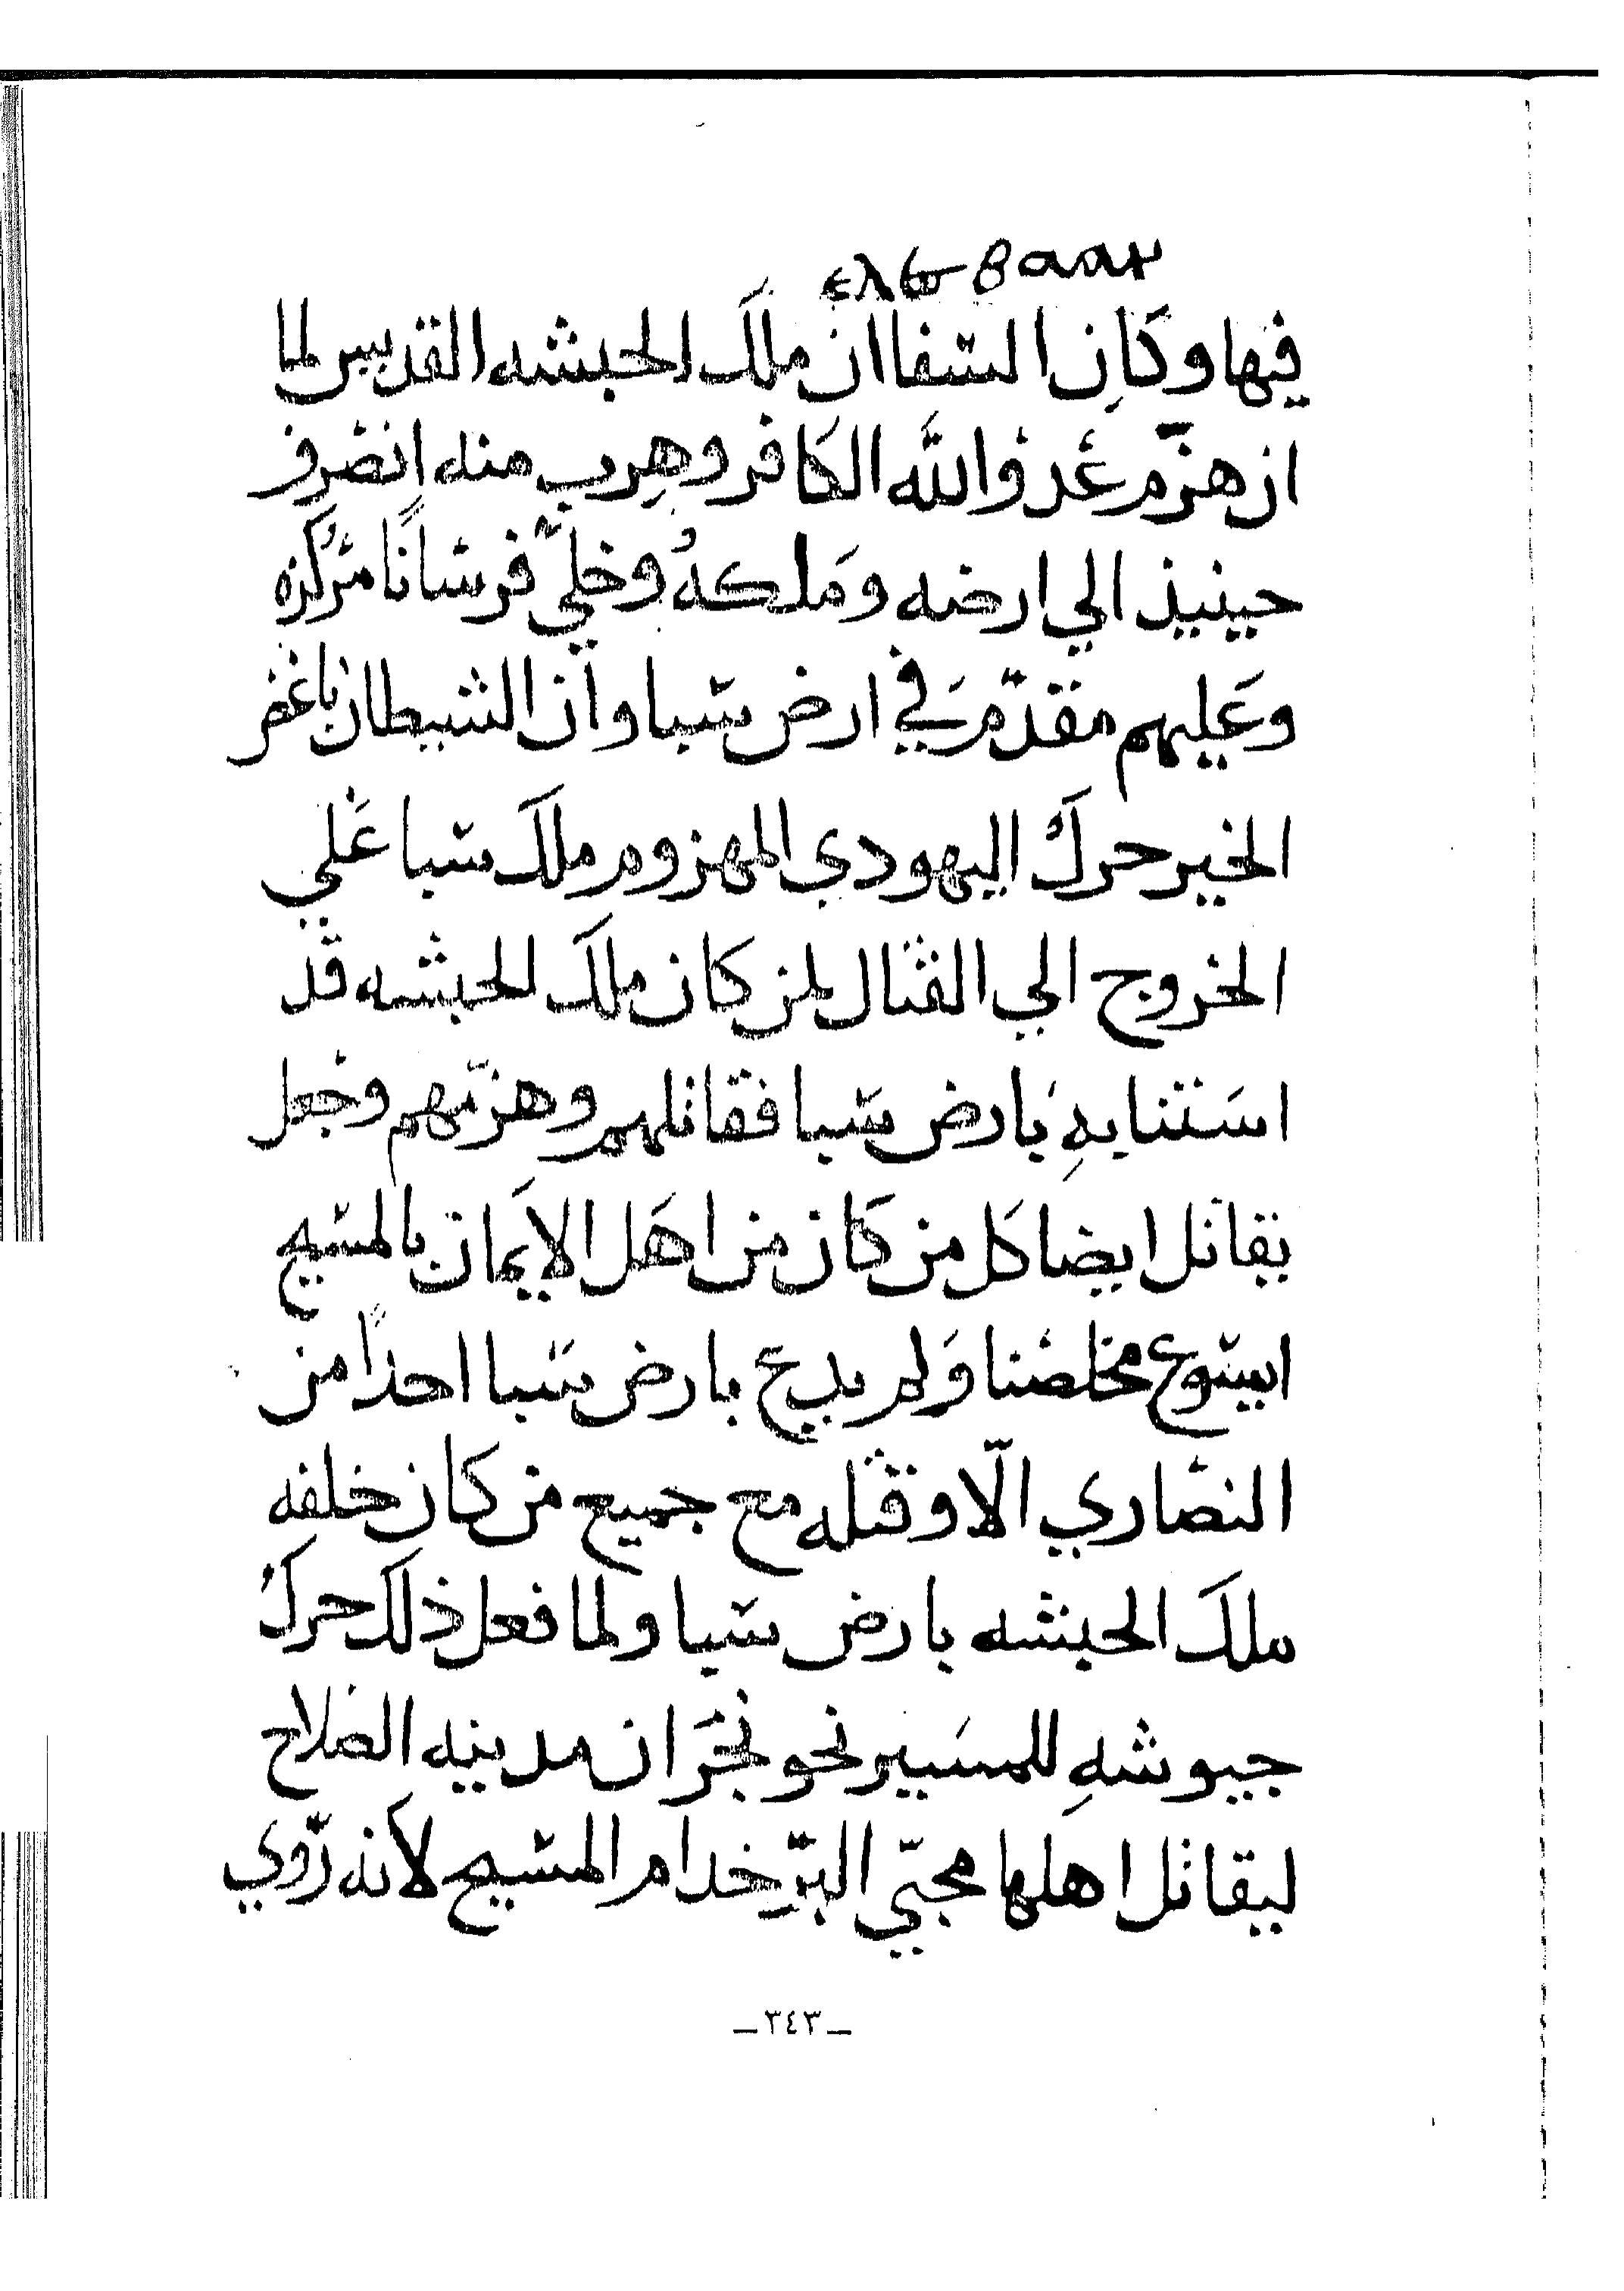 فيها وكان الشقا ان ملك الحبشه القديس لما
ان هزم عدو الله الكافر وهرب منه انصرف
حينيذ الي ارضه وملكه وخلّي فرسانًا مركزه
وعليهم مقدّم في ارض سبا وان الشيطان باغض
الخير حرك اليهودي المهزوم ملك سبا علي
الخروج الي القتال لمن كان ملك الحبشه قد
استنابه بارض سبا فقاتلهم وهزمهم وجعل
يقاتل ايضا كل من كان من اهل الايمان بالمسيح
ايسوع مخلصنا ولم يدع بارض سبا احدًا من
النصاري الّا وقتله مع جميع من كان خلفه
ملك الحبشه بارض سبا ولما فعل ذلك حرك
جيوشه للمسير نحو نجران مدينه الصلاح
ليقاتل اهلها محبّي البرّ خدام المسيح لانه روي
ـ ٣٤٣ ـ